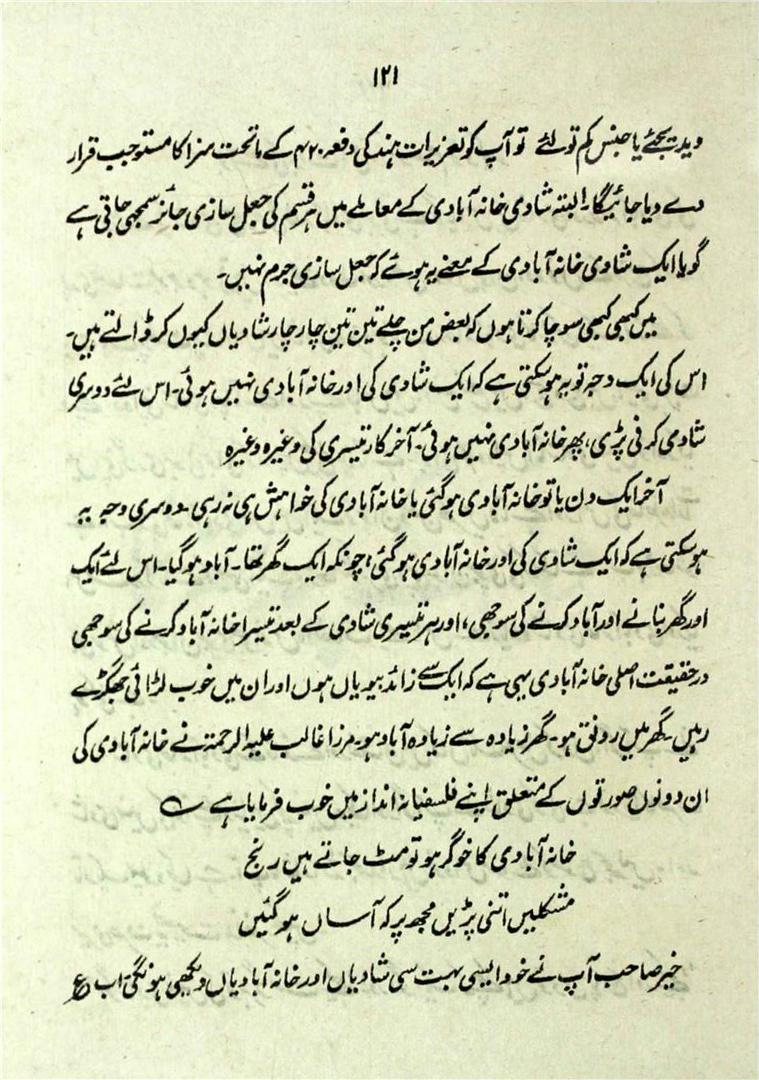 ۱۲۱
دیدیجئے یا جنس کم تولئے تو آپ کو تعزیرات ہند کی دفعہ ۴۲۰ کے ماتحت سزا کا مستوجب قرار
دے دیا جائیگا۔ البتہ شادی خانہ آبادی کے معاملے میں ہر قسم کی جعل سازی جائز سمجھی جاتی ہے
گویا ایک شادی خانہ آبادی کے معنے یہ ہوئے کہ جعل سازی جرم نہیں۔
میں کبھی کبھی سوچا کرتا ہوں کہ بعض من چلے تین تین چار چار شادیاں کیوں کر ڈالتے ہیں۔
اس کی ایک وجہ تو یہ ہوسکتی ہے کہ ایک شادی کی اور خانہ آبادی نہیں ہوئی۔ اس لئے دوسری
شادی کرنی پڑی، پھر خانہ آبادی نہیں ہوئی۔ آخر کار تیسری کی وغیرہ وغیرہ
آخر ایک دن یا تو خانہ آبادی ہوگئی یا خانہ آبادی کی خواہش ہی نہ رہی۔ دوسری وجہ یہ
ہوسکتی ہے کہ ایک شادی کی اور خانہ آبادی ہوگئی، چونکہ ایک گھر تھا۔ آباد ہوگیا۔ اس لئے ایک
اور گھر بنانے اور آباد کرنے کی سوجھی، اور ہر تیسری شادی کے بعد تیسرا خانہ آباد کرنے کی سوجھی
درحقیقت اصلی خانہ آبادی یہی ہے کہ ایک سے زائد بیویاں ہوں اور ان میں خوب لڑائی جھگڑے
رہیں۔ گھر میں رونق ہو۔ گھر زیادہ سے زیادہ آباد ہو۔ مرزا غالب علیہ الرحمۃ نے خانہ آبادی کی
ان دونوں صورتوں کے متعلق اپنے فلسفیانہ انداز میں خوب فرمایا ہے ؎
خانہ آبادی کا خوگر ہو تو مٹ جاتے ہیں رنج
مشکلیں اتنی پڑیں مجھ پر کہ آساں ہوگئیں
خیر صاحب آپ نے خود ایسی بہت سی شادیاں اور خانہ آبادیاں دیکھی ہونگی اب ع